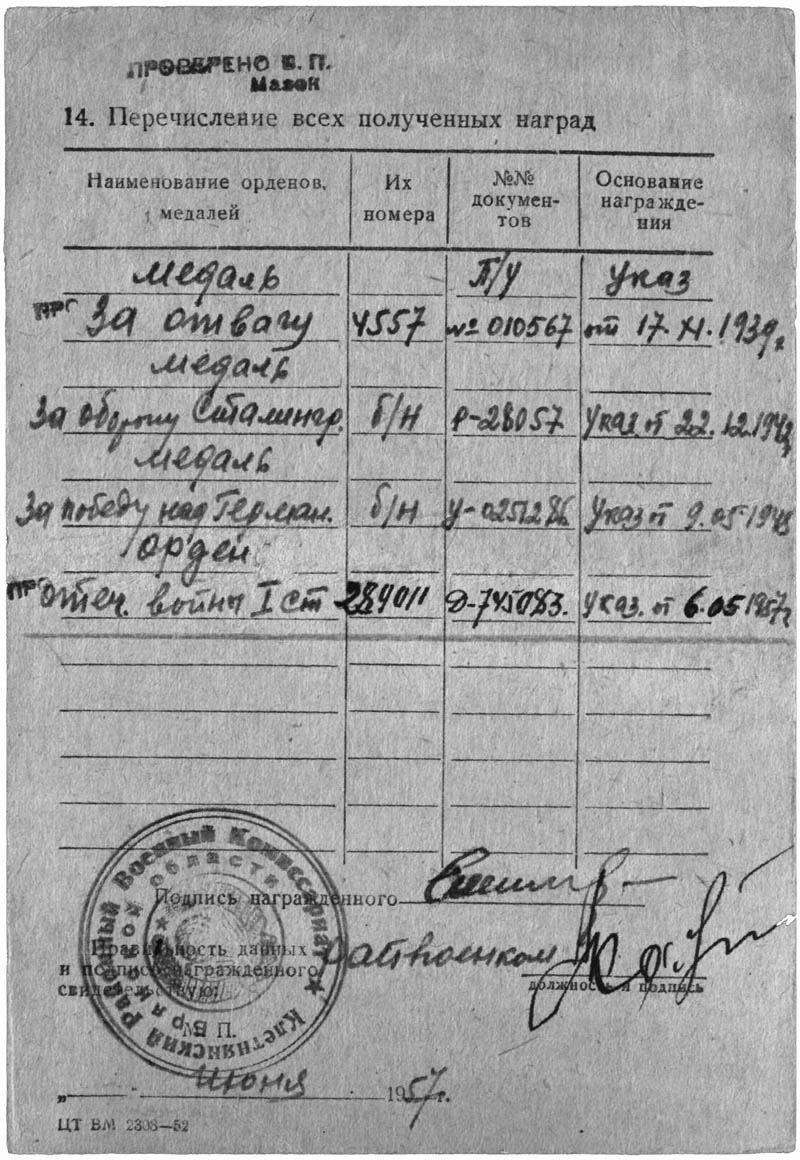 ПРОВЕРЕНО
Мазок
14. Перечисление всех полученных наград
Наименование орденов, медалей
Их номера
№№ докумен-тов
Основание награжде-ния
медаль П/У Указ
За отвагу 4557 № 010567 от 17.XI.1939г
медаль
За оборону Сталингр. б/н Р-28057 Указ от 22.12.1942
медаль
За победу над Герман. б/н У-0251286 Указ от 9.05 1945
орден
отеч. войны I ст 284011 Д-745083. Указ. от 6.05 1957г
Подпись награжденного
Правильность данных
и подписи награжденного
свидетельствую:
Райвоенком
должность и подпись
М. П.
Клетнянский Районный Военный Комиссариат
Брянской области
„ Июня 1957г.
ЦТ ВМ 2308—52